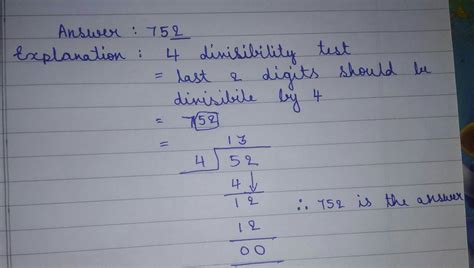 Answer : 752
Explanation : 4 divisibility test
= last 2 digits should be
divisibile by 4
= 752
= 13
4 52
4↓
12 ∴ 752 is the answer
12
00